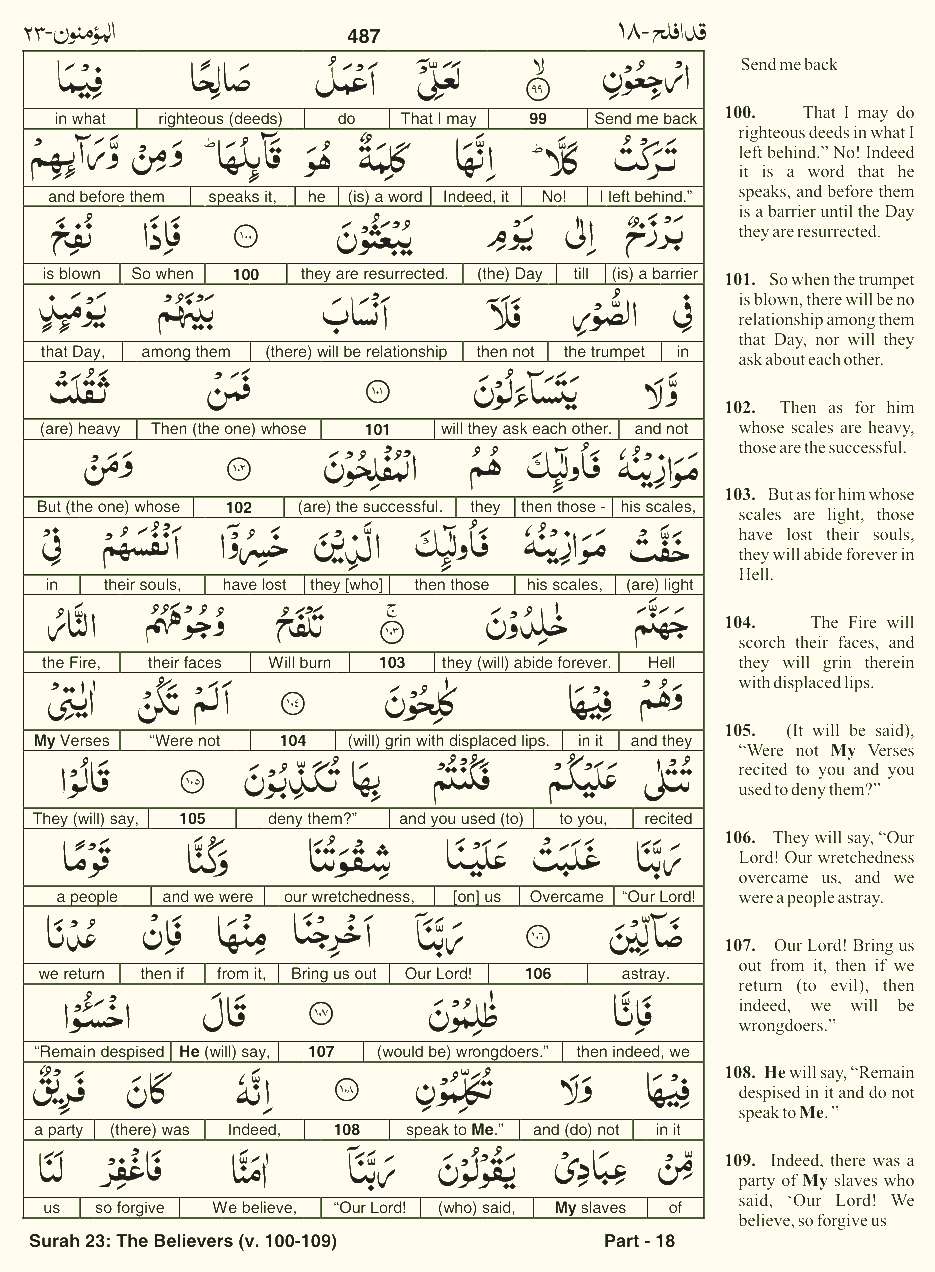 قد افلح-١٨ 487 المؤمنون-٢٣
ارْجِعُوْنِ ۙ﴿۹۹﴾ لَعَلِّیْۤ اَعْمَلُ صَالِحًا فِیْمَا
Send me back 99 That I may do righteous (deeds) in what
تَرَكْتُ كَلَّا ؕ اِنَّهَا كَلِمَةٌ هُوَ قَآىِٕلُهَا ؕ وَمِنْ وَّرَآىِٕهِمْ
I left behind.” No! Indeed, it (is) a word he speaks it, and before them
بَرْزَخٌ اِلٰى یَوْمِ یُبْعَثُوْنَ ﴿۱۰۰﴾ فَاِذَا نُفِخَ
(is) a barrier till (the) Day they are resurrected. 100 So when is blown
فِی الصُّوْرِ فَلَاۤ اَنْسَابَ بَیْنَهُمْ یَوْمَىِٕذٍ
in the trumpet then not (there) will be relationship among them that Day,
وَّلَا یَتَسَآءَلُوْنَ ﴿۱۰۱﴾ فَمَنْ ثَقُلَتْ
and not will they ask each other. 101 Then (the one) whose (are) heavy
مَوَازِیْنُهٗ فَاُولٰٓىِٕكَ هُمُ الْمُفْلِحُوْنَ ﴿۱۰۲﴾ وَمَنْ
his scales, then those - they (are) the successful. 102 But (the one) whose
خَفَّتْ مَوَازِیْنُهٗ فَاُولٰٓىِٕكَ الَّذِیْنَ خَسِرُوْۤا اَنْفُسَهُمْ فِیْ
(are) light his scales, then those they [who] have lost their souls, in
جَهَنَّمَ خٰلِدُوْنَ ۚ﴿۱۰۳﴾ تَلْفَحُ وُجُوْهَهُمُ النَّارُ
Hell they (will) abide forever. 103 Will burn their faces the Fire,
وَهُمْ فِیْهَا كٰلِحُوْنَ ﴿۱۰٤﴾ اَلَمْ تَكُنْ اٰیٰتِیْ
and they in it (will) grin with displaced lips. 104 “Were not My Verses
تُتْلٰى عَلَیْكُمْ فَكُنْتُمْ بِهَا تُكَذِّبُوْنَ ﴿۱۰۵﴾ قَالُوْا
recited to you, and you used (to) deny them?” 105 They (will) say,
رَبَّنَا غَلَبَتْ عَلَیْنَا شِقْوَتُنَا وَكُنَّا قَوْمًا
“Our Lord! Overcame [on] us our wretchedness, and we were a people
ضَآلِّیْنَ ﴿۱۰٦﴾ رَبَّنَاۤ اَخْرِجْنَا مِنْهَا فَاِنْ عُدْنَا
astray. 106 Our Lord! Bring us out from it, then if we return
فَاِنَّا ظٰلِمُوْنَ ﴿۱۰۷﴾ قَالَ اخْسَـُٔوْا
then indeed, we (would be) wrongdoers.” 107 He (will) say, “Remain despised
فِیْهَا وَلَا تُكَلِّمُوْنِ ﴿۱۰۸﴾ اِنَّهٗ كَانَ فَرِیْقٌ
in it and (do) not speak to Me.” 108 Indeed, (there) was a party
مِّنْ عِبَادِیْ یَقُوْلُوْنَ رَبَّنَاۤ اٰمَنَّا فَاغْفِرْ لَنَا
of My slaves (who) said, “Our Lord! We believe, so forgive us
Surah 23: The Believers (v. 100-109) Part - 18
Send me back
100. That I may do
righteous deeds in what I
left behind.” No! Indeed
it is a word that he
speaks, and before them
is a barrier until the Day
they are resurrected.
101. So when the trumpet
is blown, there will be no
relationship among them
that Day, nor will they
ask about each other.
102. Then as for him
whose scales are heavy,
those are the successful.
103. But as for him whose
scales are light, those
have lost their souls,
they will abide forever in
Hell.
104. The Fire will
scorch their faces, and
they will grin therein
with displaced lips.
105. (It will be said),
“Were not My Verses
recited to you and you
used to deny them?”
106. They will say, “Our
Lord! Our wretchedness
overcame us, and we
were a people astray.
107. Our Lord! Bring us
out from it, then if we
return (to evil), then
indeed, we will be
wrongdoers.”
108. He will say, “Remain
despised in it and do not
speak to Me.”
109. Indeed, there was a
party of My slaves who
said, ‘Our Lord! We
believe, so forgive us